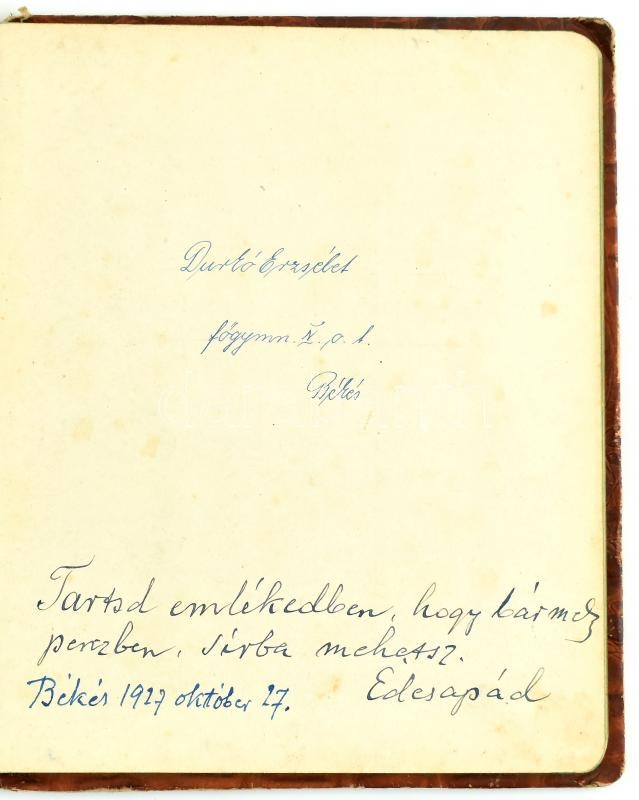 Durkó Erzsébet
főgymn. IV. o. t.
Békés
Tartsd emlékedben, hogy bármely
perczben, sírba mehetsz.
Édesapád
Békés 1927 október 27.